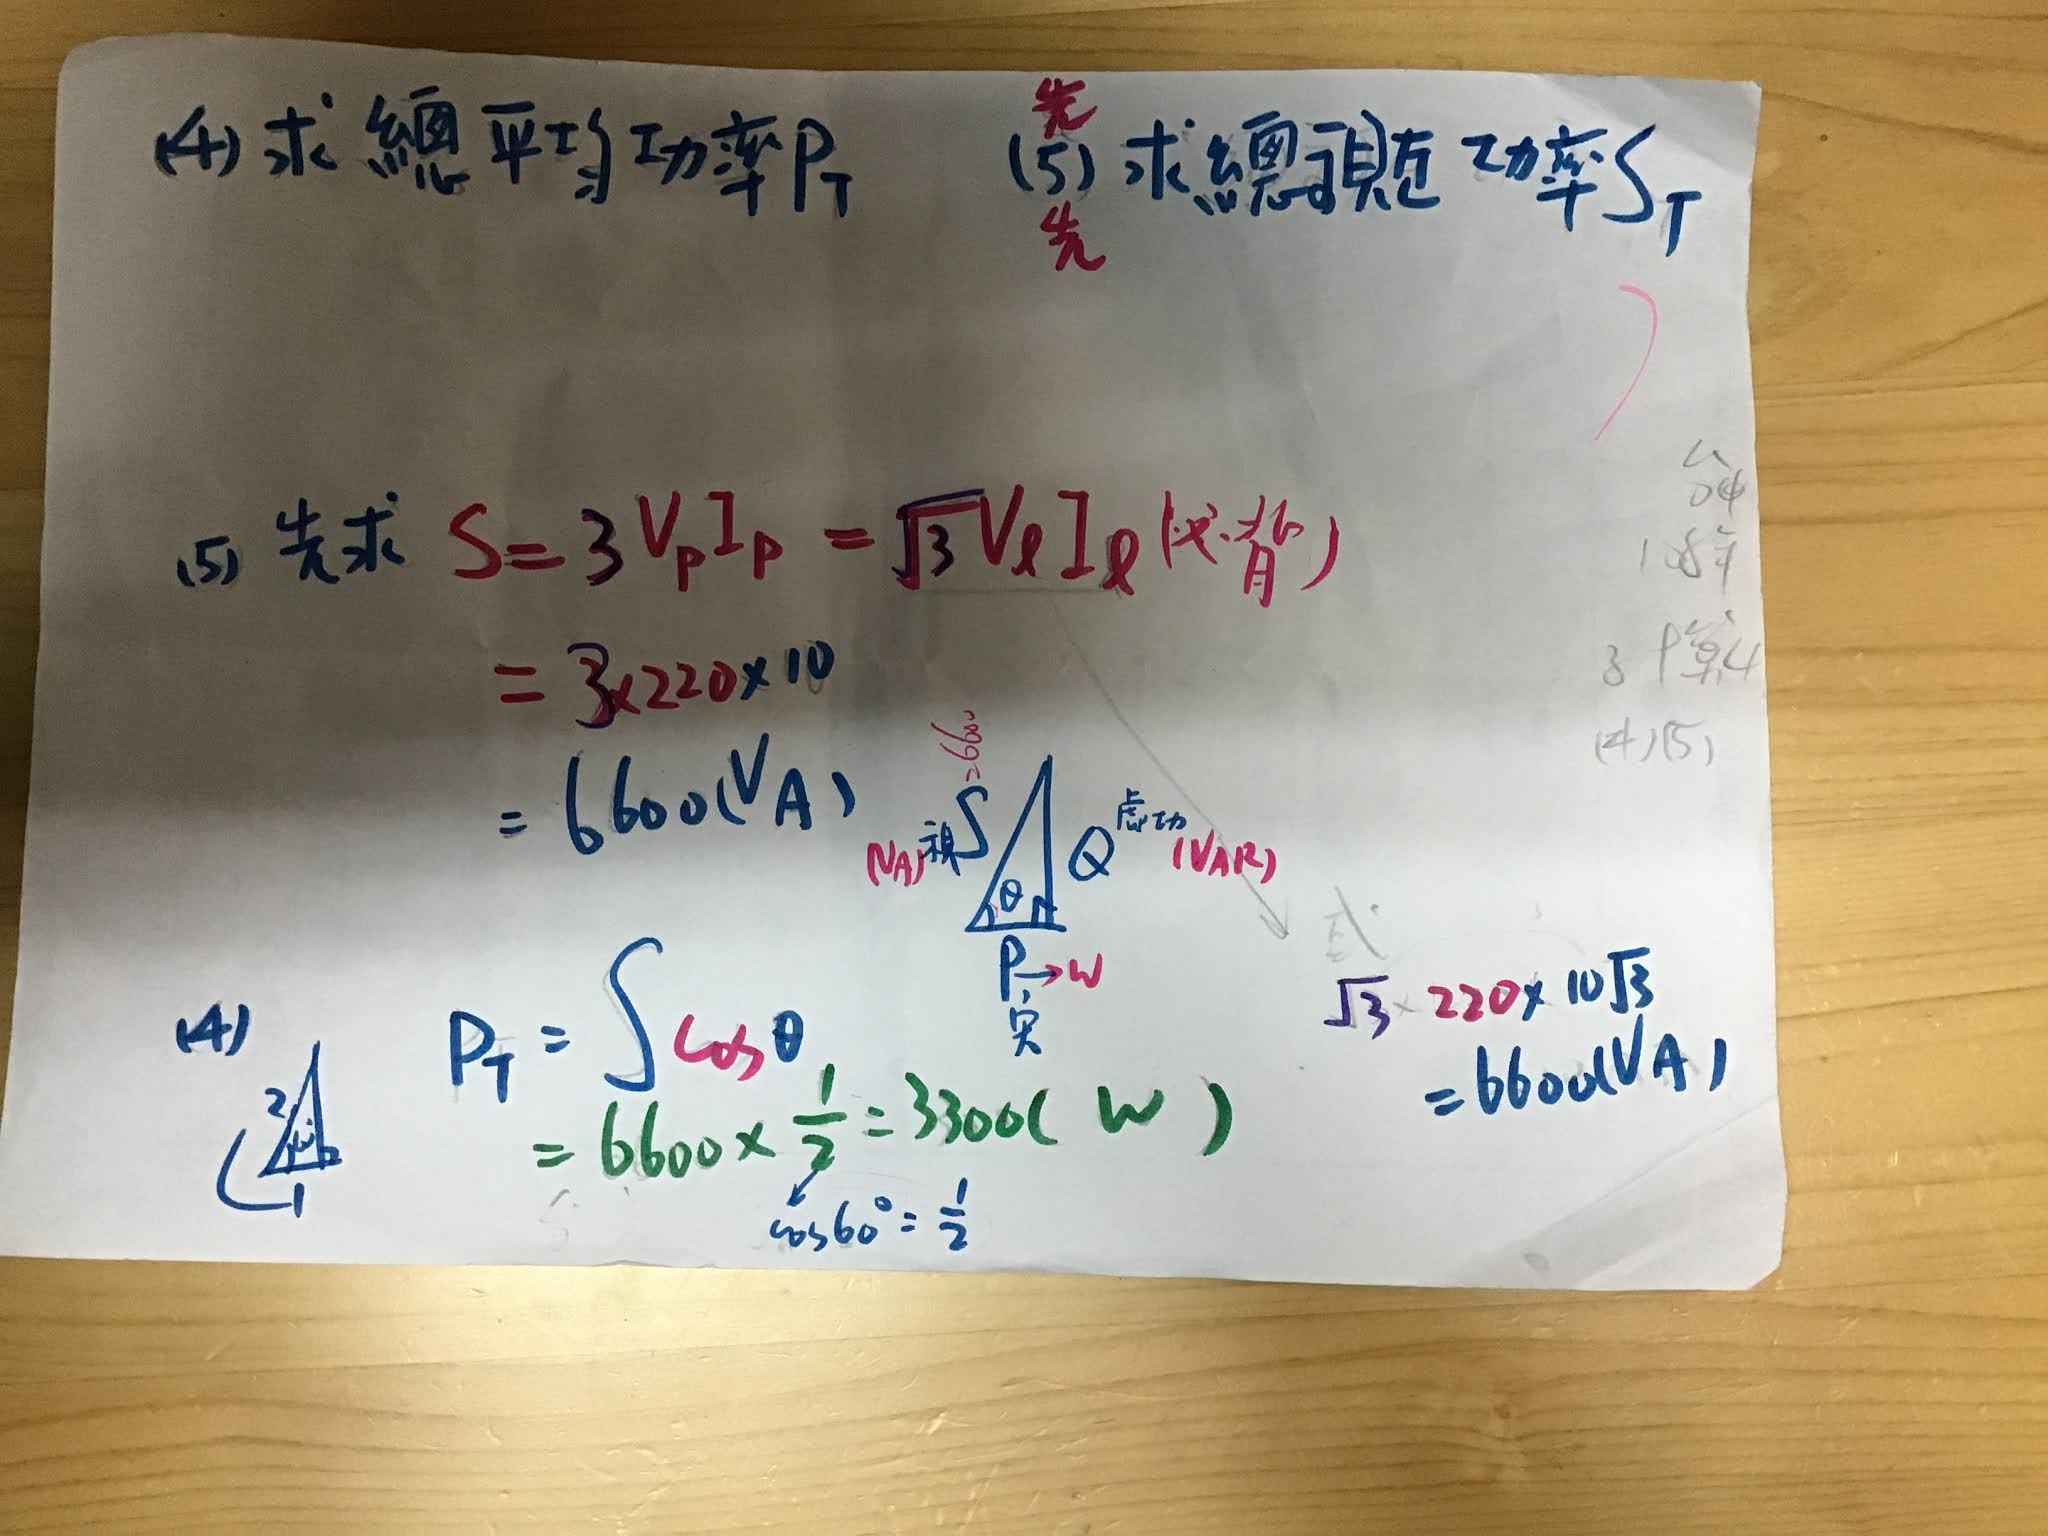 (4) 求總平均功率PT
先
(5) 求總視在功率ST
先
(5) 先求 S = 3VpIp = √3VlIl (必背)
= 3x220x10
= 6600(VA)
=6600
(VA) 視 S
θ
Q 虛功 (VAR)
P → W
實
√3 × 220 × 10√3
= 6600(VA)
(4)
2
1
PT = S cosθ
= 6600 × 1/2 = 3300( W )
cos60° = 1/2
108年
(4)(5)